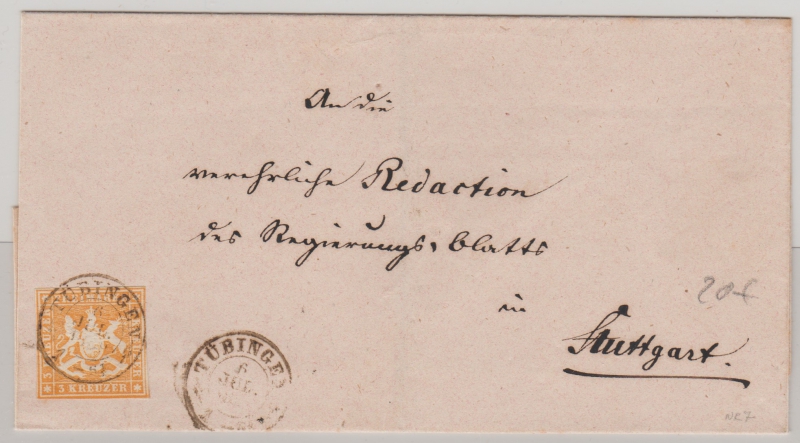 An die
verehrliche Redaction
des Regierungs-blatts
in
Stuttgart.
20.-
TÜBINGEN
3 KREUZER
TÜBINGEN
6
JUL.
NR 7